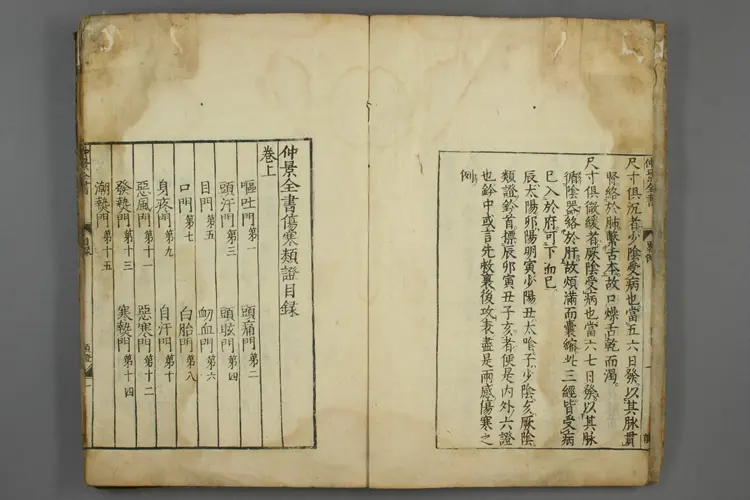 尺寸俱沉者少陰受病也當五六日發以其脉貫
腎絡於肺繫舌本故口燥舌乾而渴
尺寸俱微緩者厥陰受病也當六七日發以其脉
循陰器絡於肝故煩滿而囊縮此三經皆受病
已入於府可下而已
辰太陽卯陽明寅少陽丑太陰子少陰亥厥陰
類證鈐首摽辰卯寅丑子亥者便是內外六證
也鈐中或言先救裏後攻表盡是兩感傷寒之
例
仲景全書傷寒類證目録
卷上
嘔吐門第一 頭痛門第二
頭汗門第三 頭眩門第四
目門第五 衂血門第六
口門第七 白胎門第八
身夜門第九 自汗門第十
惡風門第十一 惡寒門第十二
發熱門第十三 寒熱門第十四
潮熱門第十五
仲景全書
目録